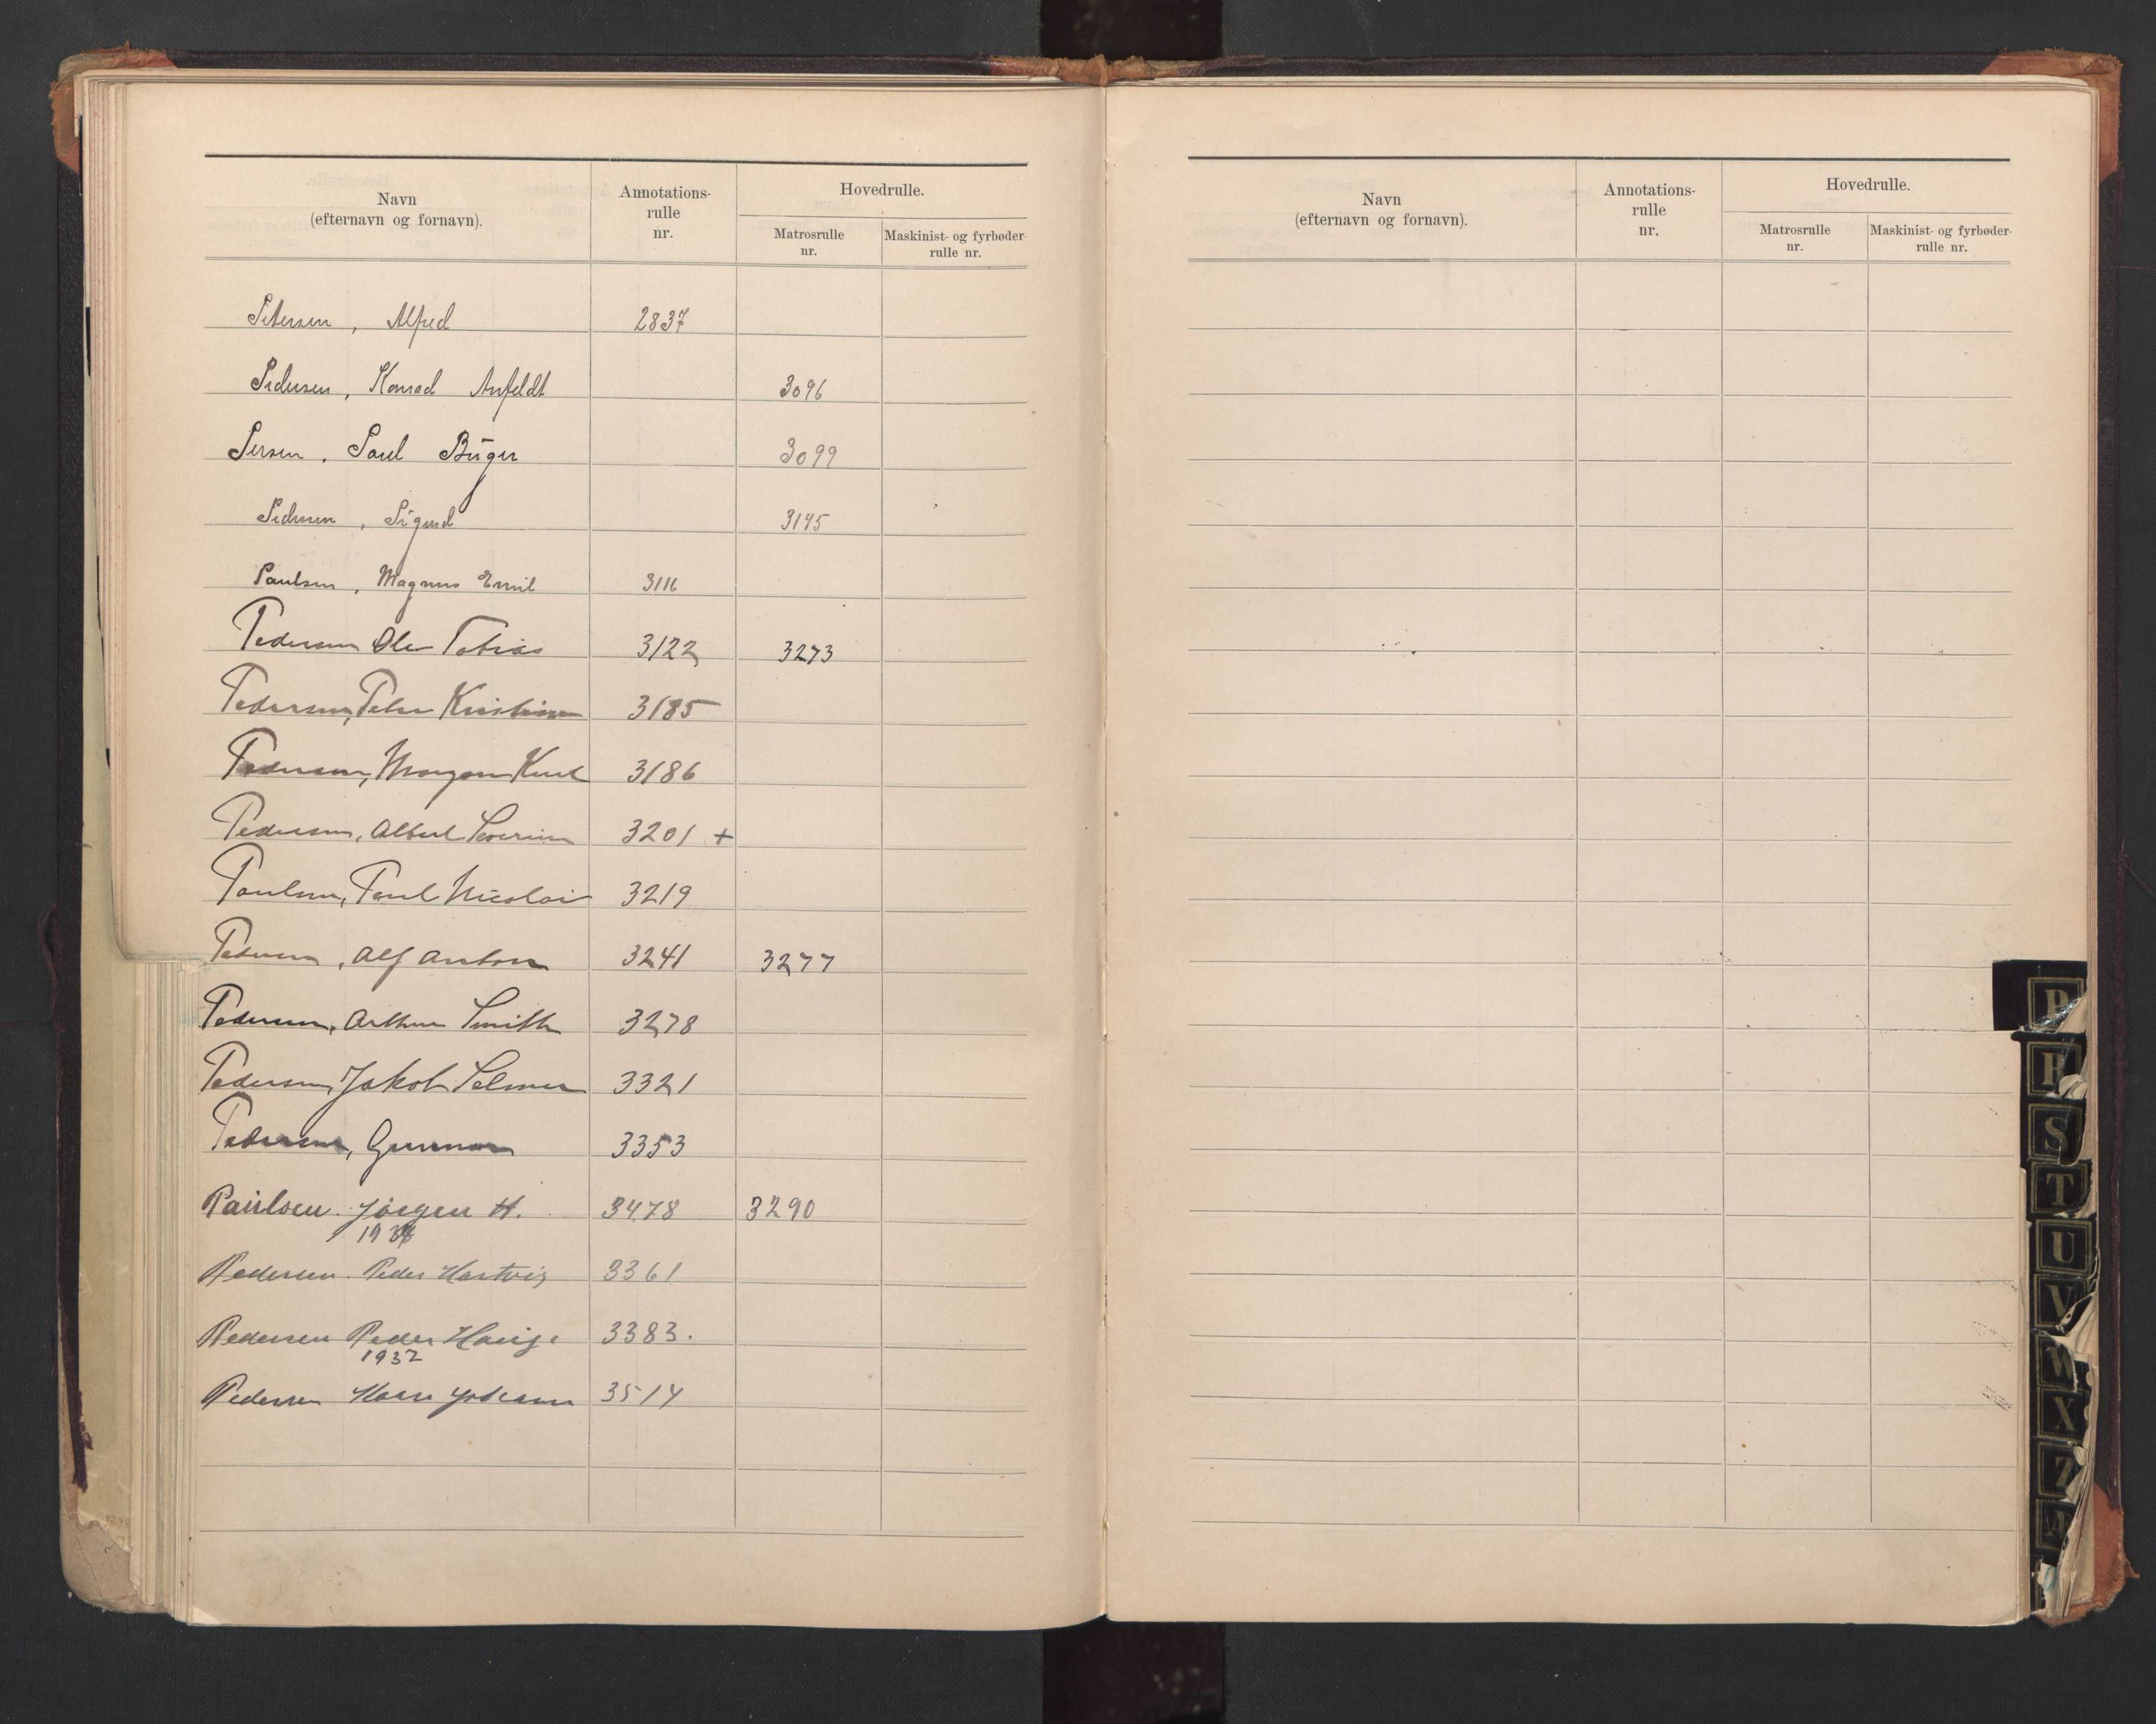 Navn
(efternavn og fornavn).
Annotations-
rulle
nr.
Hovedrulle.
Matrosrulle
nr.
Maskinist- og fyrbøder-
rulle nr.
Petersen, Alfred 2837
Pedersen, Konrad Anfeldt 3096
Persen, Paul Birger 3099
Pedersen, Sigurd 3145
Paulsen, Magnus Emil 3116
Pedersen Ole Tobias 3122 3273
Pedersen, Peder Kristian 3185
Pedersen, Knut 3186
Pedersen, Albert Severin 3201 +
Paulsen, Paul Nicolai 3219
Pedersen, Alf Anton 3241 3277
Pedersen, Arthur Smith 3278
Pedersen, Jakob Selmer 3321
Pedersen, Gunnar 3353
Paulsen. Jørgen H. 3478 3290
Pedersen. Peder Hartvig 3361
Pedersen Peder Hauge 3383.
1932
Pedersen Hans Johann 3514
Navn
(efternavn og fornavn).
Annotations-
rulle
nr.
Hovedrulle.
Matrosrulle
nr.
Maskinist- og fyrbøder-
rulle nr.
P
R
S
T
U
V
W
X
Z